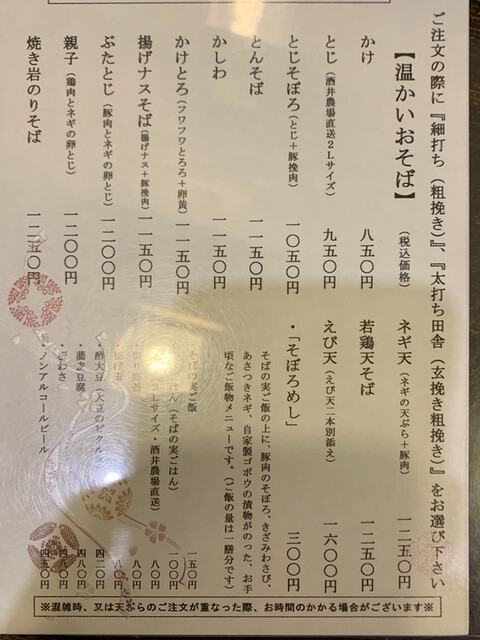 ご注文の際に『細打ち（粗挽き）』、『太打ち田舎（玄挽き粗挽き）』をお選び下さい
【温かいおそば】（税込価格）
かけ　八五〇円
とじ（酒井農場直送２Ｌサイズ）　九五〇円
とじそぼろ（とじ＋豚挽肉）　一〇五〇円
とんそば　一一五〇円
かしわ　一一五〇円
かけとろ（フワフワとろろ＋卵黄）　一一五〇円
揚げナスそば（揚げナス＋豚挽肉）　一一五〇円
ぶたとじ（豚肉とネギの卵とじ）　一二〇〇円
親子（鶏肉とネギの卵とじ）　一二〇〇円
焼き岩のりそば　一二五〇円
ネギ天（ネギの天ぷら＋豚肉）　一二五〇円
若鶏天そば　一二五〇円
えび天（えび天二本別添え）　一六〇〇円
・「そぼろめし」　三〇〇円
そばの実ご飯の上に、豚肉のそぼろ、きざみわさび、
あさつきネギ、自家製ゴボウの漬物がのった、お手
頃なご飯物メニューです。（ご飯の量は一膳分です）
・そばの実ご飯　一五〇円
ごはん（そばの実ごはん）　一〇〇円
Ｌサイズ・酒井農場直送）　八〇円
八〇円
揚げ玉　八〇円
・酢大豆（大豆のピクルス）　四二〇円
・蕎麦豆腐　四八〇円
わさ　四八〇円
・ノンアルコールビール　四五〇円
※混雑時、又は天ぷらのご注文が重なった際、お時間のかかる場合がございます※